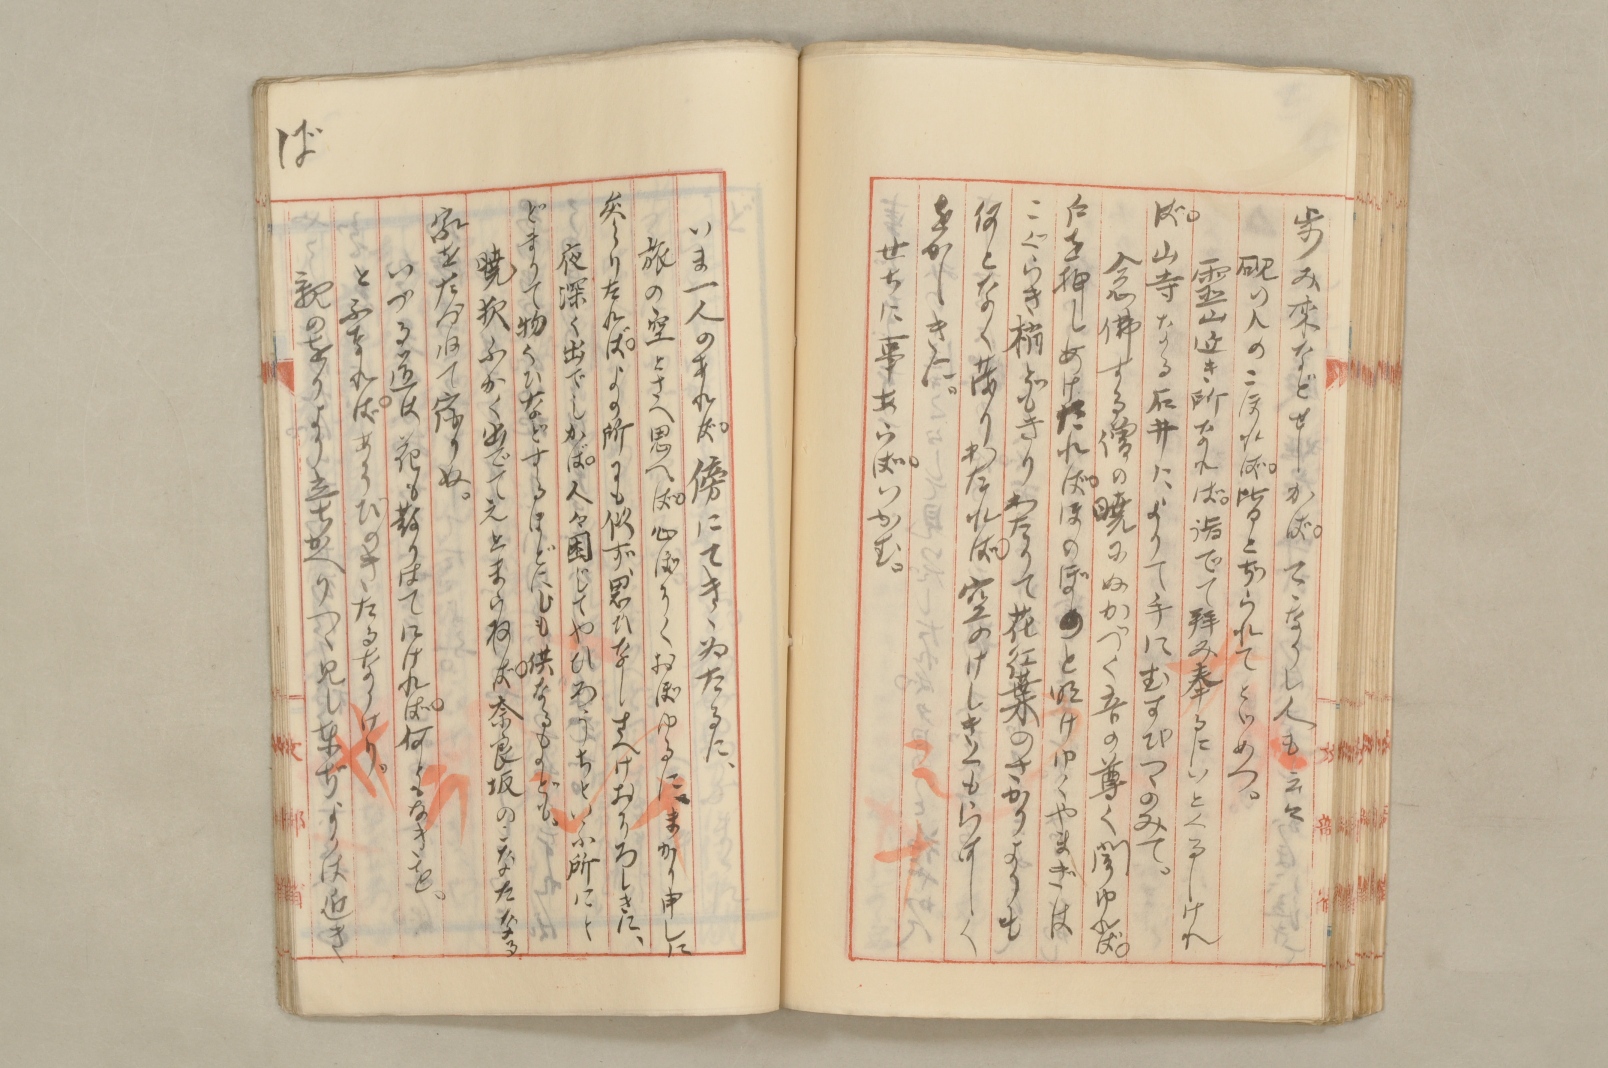 歩み来などせしかば。てゝなりし人も云々
硯の入のこほれば。皆とぢられてとゞめつ。
靈山近き所なれば。詣でて拜み奉るにいとくるしけれ
ば。山寺なる石井によりて手にむすびつゝのみて。
念佛する僧の曉にぬかづく音の尊く聞ゆれば。
戸を押しあけたれば。ほのぼのと明けゆくやまぎは
こぐらき梢どもきりわたりて花紅葉のさかりよりも
何となく茂りわたれば。空のけしき
をかしきに。
せちに事あらば。いかむ。
ば
いま一人のまれば。傍にてきゝゐたるに、
旅の空とさへ思へば。心ぼそくおぼゆるに。まかり申しに
參りたれば。よの所にも似ず、思ひなしすへけおそろしきに、
夜深く出でしかば。人々困じてやひろうちといふ所にと
どまりて物くひなどするほどにしも供なるものども。
曉夜ふかく出でてえとまらねば。奈良坂のこなたなる
家をたづねて宿りぬ。
いづる道は花も散りはてにければ。何ともなきを。
とふなればあそびのきたるなりけり。
親のをりより立ちかへりつゝ見しあづまぢよりは近き
文部省